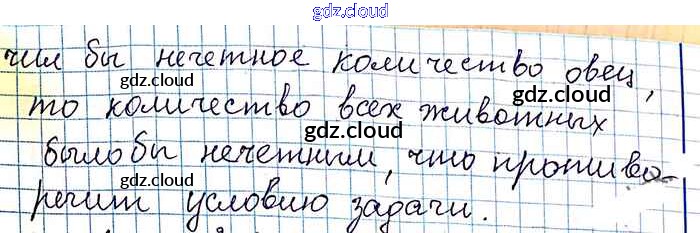 gdz.cloud
чил бы нечетное количество овец,
gdz.cloud
gdz.cloud
то количество всех животных
gdz.cloud
было бы нечетным, что противо-
gdz.cloud
речит условию задачи.